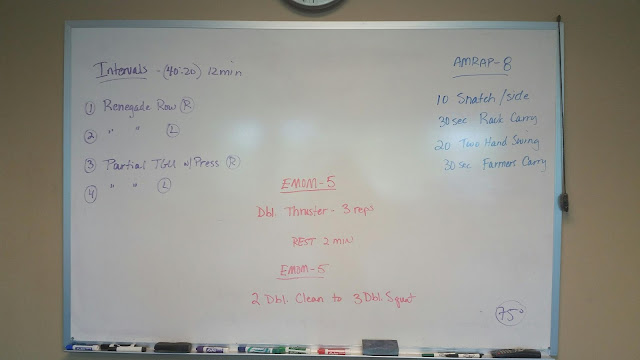 Intervals - (40:20) 12min
① Renegade Row Ⓡ
② " " Ⓛ
③ Partial TGU w/Press Ⓡ
④ " " Ⓛ
EMOM-5
Dbl. Thruster - 3 reps
REST 2 MIN
EMOM-5
2 Dbl. Clean to 3 Dbl. Squat
AMRAP-8
10 Snatch/side
30sec Rack Carry
20 Two Hand Swing
30sec Farmers Carry
75°